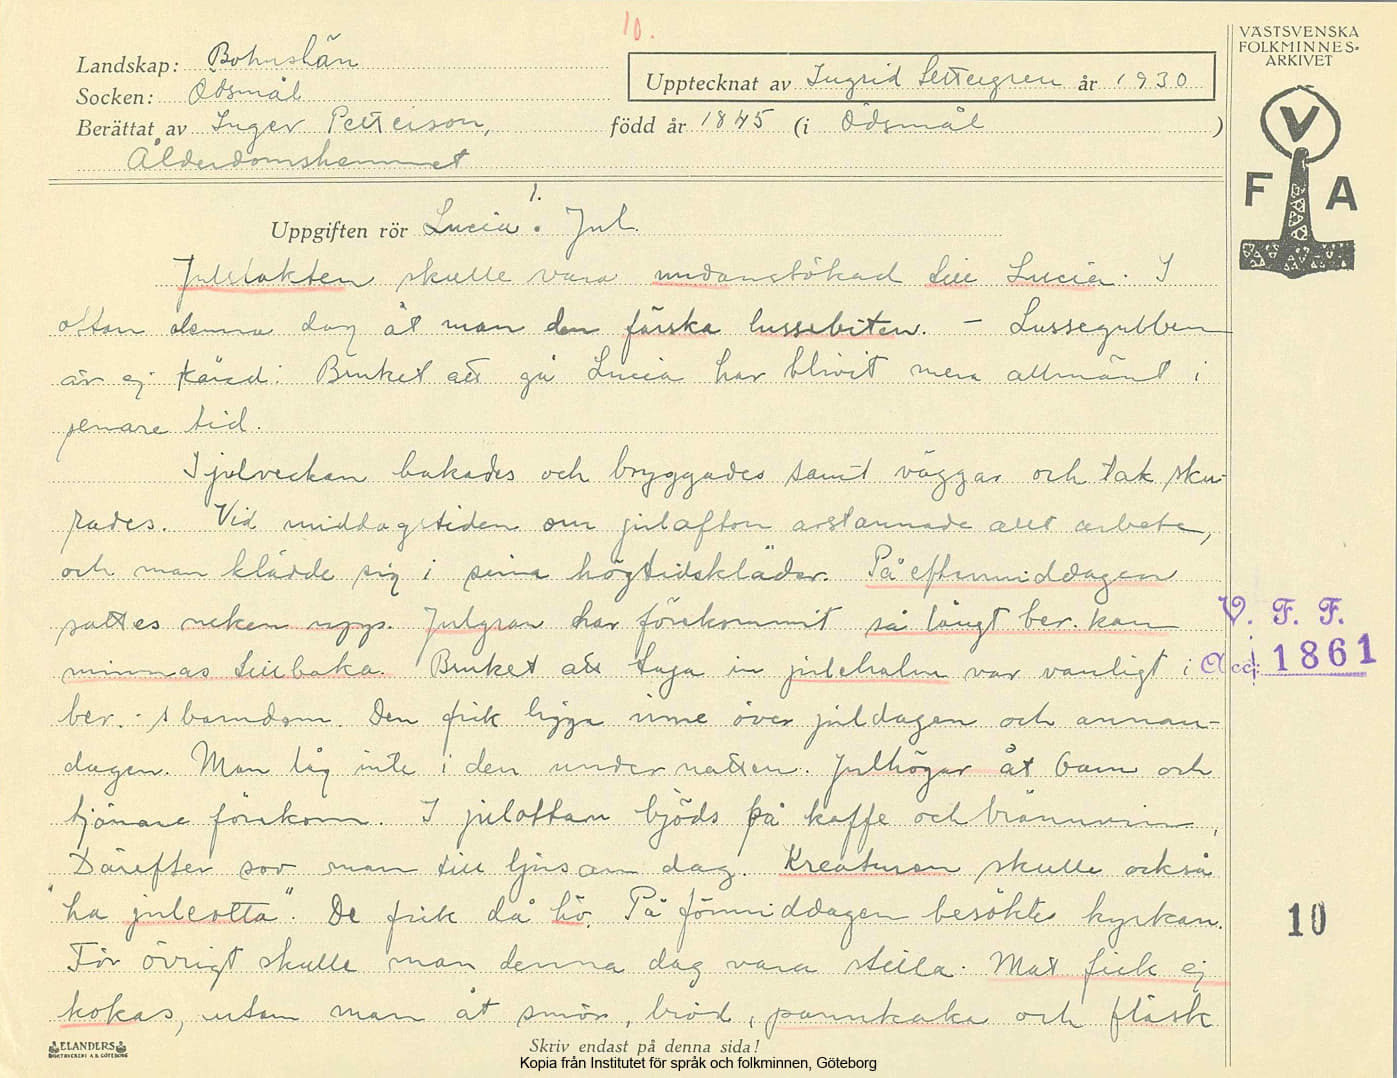 10.
VÄSTSVENSKA
FOLKMINNES-
ARKIVET
Landskap: Bohuslän
Upptecknat av Ingrid Settergren år 1930
Socken: Ödsmål
Berättat av Inger Petterson, född år 1845 (i Ödsmål )
Ålderdomshemmet
V
F A
1.
Uppgiften rör Lucia. Jul.
Julslakten skulle vara undanstökad till Lucia. I
ottan denna dag åt man den färska lussebiten. – Lussegubben
är ej känd. Bruket att gå Lucia har blivit mera allmänt i
senare tid.
I julveckan bakades och bryggades samt väggar och tak sku-
rades. Vid middagstiden om julafton avstannade allt arbete,
och man klädde sig i sina högtidskläder. På eftermiddagen
sattes neken upp. Julgran har förekommit så långt ber. kan
minnas tillbaka. Bruket att taga in julehalm var vanligt i
ber.-s barndom. Den fick ligga inne över juldagen och annan-
dagen. Man låg inte i den under natten. Julhögar åt barn och
tjänare förekom. I julottan bjöds på kaffe och brännvin.
Därefter sov man till ljusan dag. Kreaturen skulle också
"ha juleotta". De fick då hö. På förmiddagen besöktes kyrkan.
För övrigt skulle man denna dag vara stilla. Mat fick ej
kokas, utan man åt smör, bröd, pannkaka och fläsk
V. F. F.
Acc: 1861
10
ELANDERS
BOKTRYCKERI A.B. GÖTEBORG
Skriv endast på denna sida!
Kopia från Institutet för språk och folkminnen, Göteborg